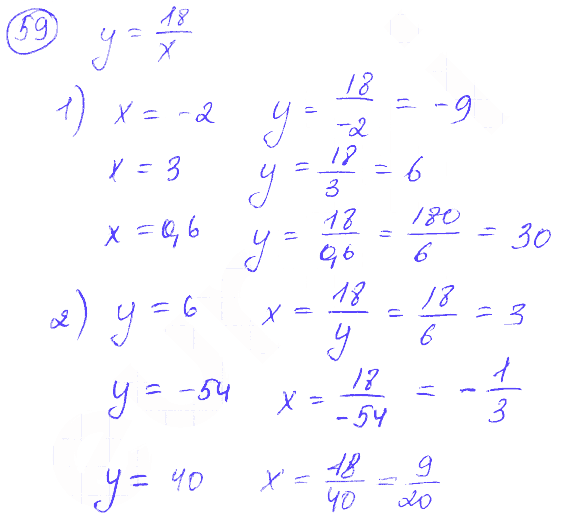 59 y = 18/x
1) x = -2 y = 18/-2 = -9
x = 3 y = 18/3 = 6
x = 0,6 y = 18/0,6 = 180/6 = 30
2) y = 6 x = 18/y = 18/6 = 3
y = -54 x = 18/-54 = -1/3
y = 40 x = 18/40 = 9/20